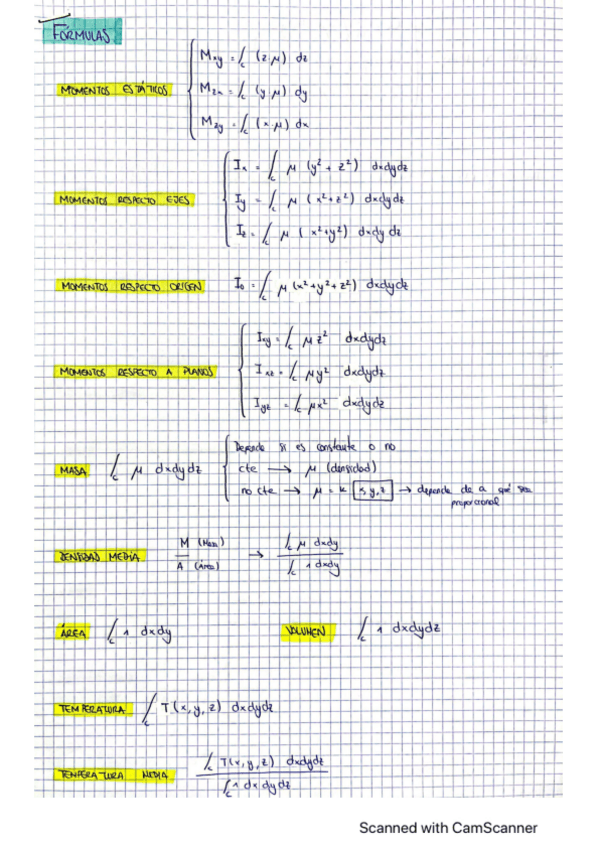 FÓRMULAS
MOMENTOS ESTÁTICOS
Mxy = ∫c (z μ) dz
Mzx = ∫c (y μ) dy
Mzy = ∫c (x μ) dx
MOMENTOS RESPECTO EJES
Ix = ∫c μ (y² + z²) dxdydz
Iy = ∫c μ (x² + z²) dxdydz
Iz = ∫c μ (x² + y²) dxdydz
MOMENTOS RESPECTO ORIGEN
I0 = ∫c μ (x² + y² + z²) dxdydz
MOMENTOS RESPECTO A PLANOS
Ixy = ∫c μ z² dxdydz
Ixz = ∫c μ y² dxdydz
Iyz = ∫c μ x² dxdydz
MASA ∫c μ dxdydz
Depende si es constante o no
cte → μ (densidad)
no cte → μ = k x, y, z → depende de a qué sea
proporcional
DENSIDAD MEDIA M (Masa) / A (Área) → ∫c μ dxdy / ∫c 1 dxdy
ÁREA ∫c 1 dxdy VOLUMEN ∫c 1 dxdydz
TEMPERATURA ∫c T(x, y, z) dxdydz
TEMPERATURA MEDIA ∫c T(x, y, z) dxdydz / ∫c 1 dxdydz
Scanned with CamScanner